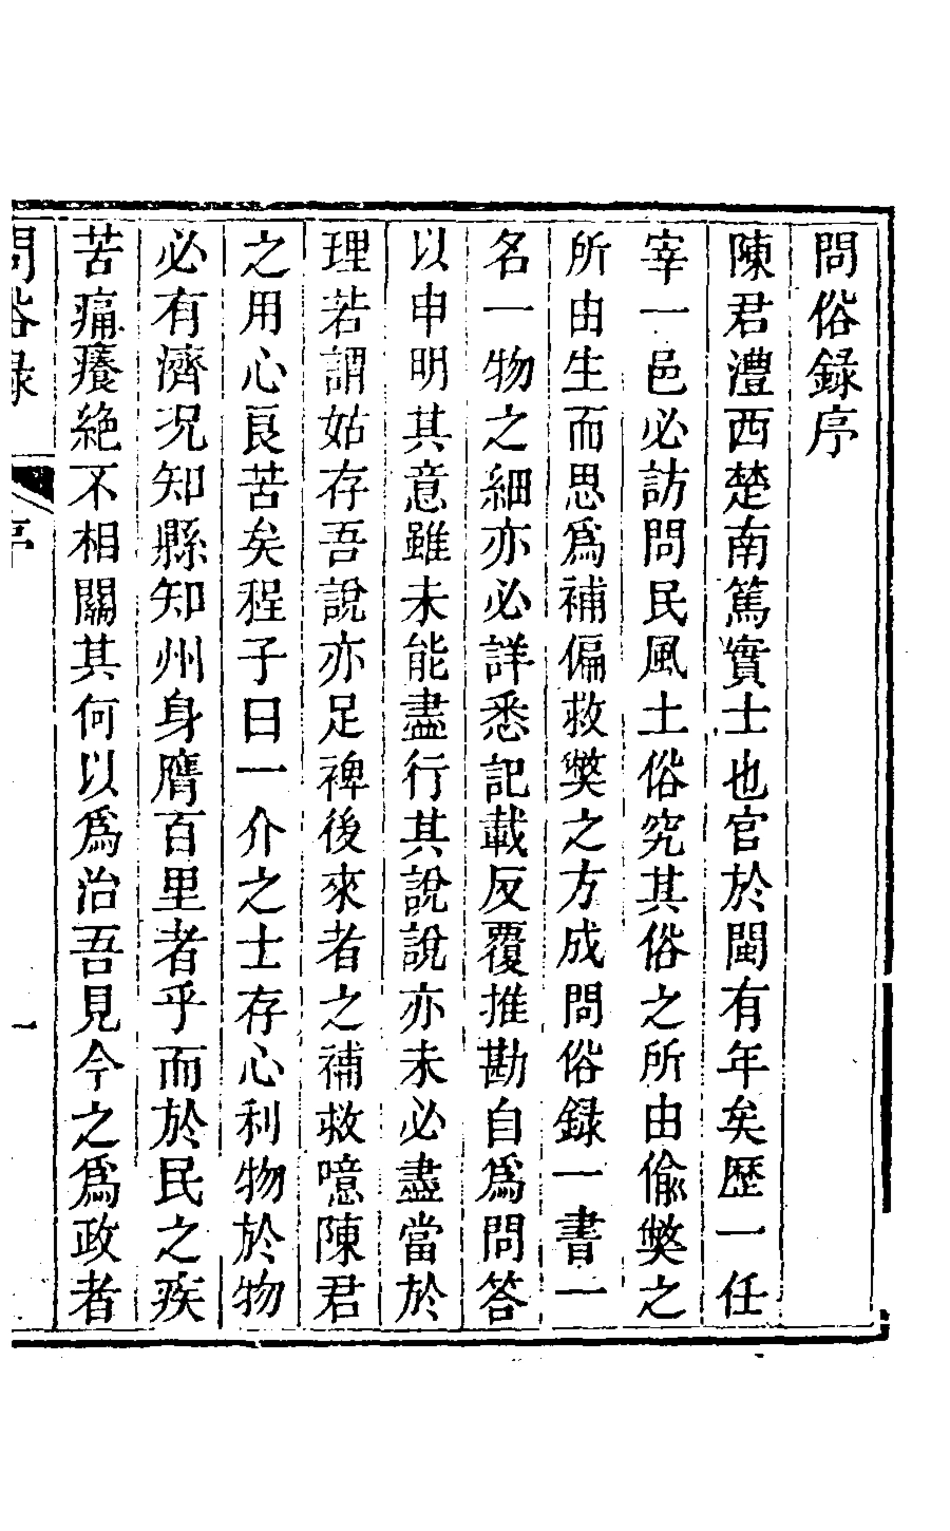 問俗録序
陳君澧西楚南篤實士也官於閩有年矣歷一任
宰一邑必訪問民風土俗究其俗之所由偷獘之
所由生而思爲補偏救獘之方成問俗録一書一
名一物之細亦必詳悉記載反覆推勘自爲問答
以申明其意雖未能盡行其說說亦未必盡當於
理若謂姑存吾說亦足裨後來者之補救噫陳君
之用心良苦矣程子曰一介之士存心利物於物
必有濟況知縣知州身膺百里者乎而於民之疾
苦痛癢絶不相關其何以爲治吾見今之爲政者
問俗録
序
一